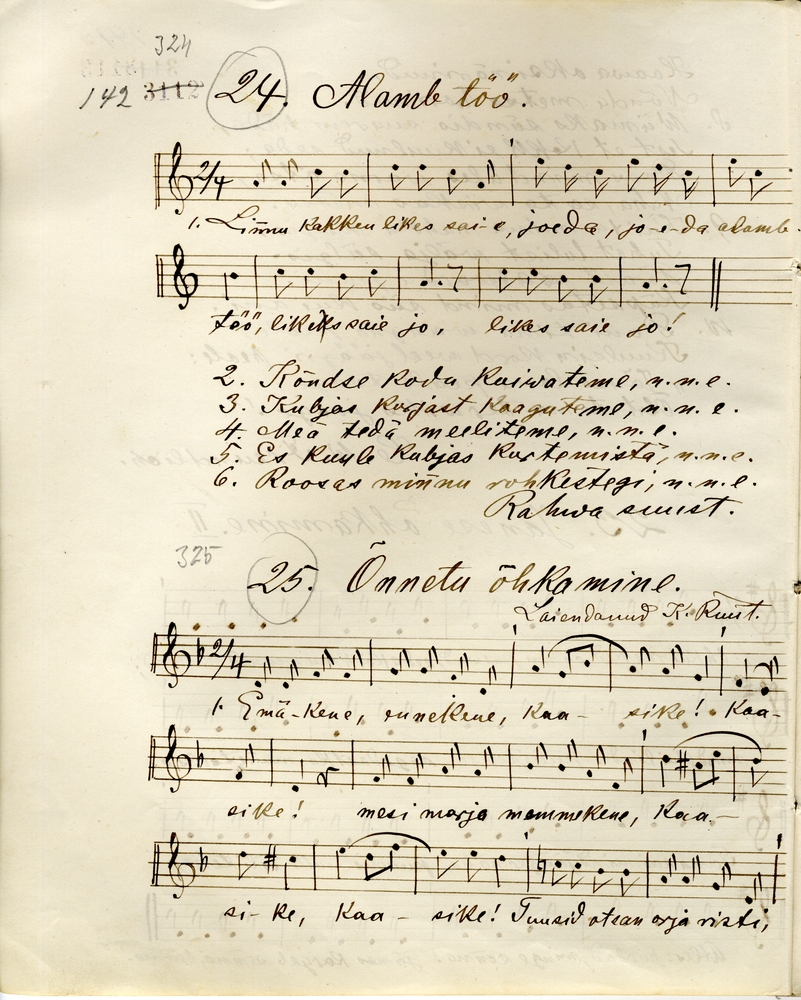 324
142 3112 24. Alamb töö.
2/4
1. Linnu kakken likes sai-e, joeda, jo-e-da alamb-
töö, likes saie jo, likes saie jo!
2. Kõndse kodu kaiwateme, n.n.e.
3. Kubjas kurjast kaaguteme, n.n.e.
4. Meä tedä meeliteme, n.n.e.
5. Es kuule kubjas kurtemistä, n.n.e.
6. Roosas minnu rohkestegi, n.n.e.
Rahwa suust.
325
25. Õnnetu õhkamine.
Laiendanud K. Ruut.
2/4
1. Emä-kene, ennekene, kaa- sike! Kaa-
sike! mesi marja memmekene, Kaa-
si-ke, Kaa- sike! Tuusid otsan orja risti,